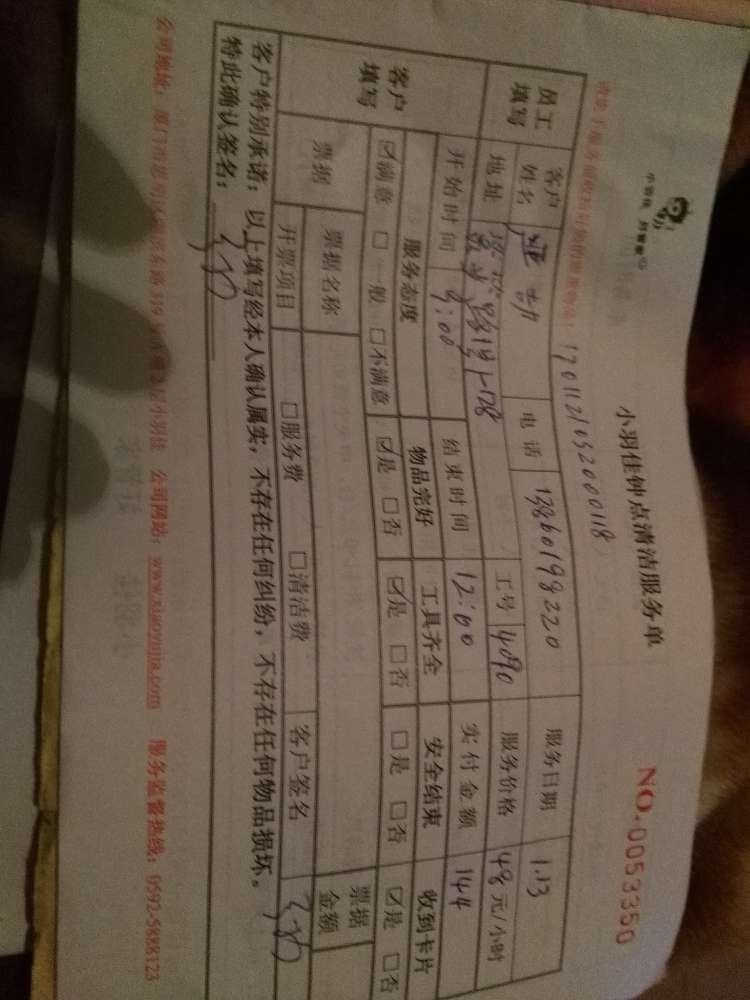 小羽佳钟点清洁服务单
NO.0053350
1701121032000118
员工填写
客户姓名
电话 13860198220
服务日期 1.13
地址
工号 4090
服务价格 48元/小时
开始时间 9:00
结束时间 12:00
实付金额 144
客户填写
服务态度 物品完好 工具齐全 安全结束 收到卡片
☑满意 □一般 □不满意 ☑是 □否 ☑是 □否 □是 □否 ☑是 □否
票据
票据名称
票据金额
开票项目 □服务费 □清洁费 客户签名
客户特别承诺：以上填写经本人确认属实，不存在任何纠纷，不存在任何物品损坏。
特此确认签名：
公司网站：www.xiaoyujia.com 服务监督热线：0592-5888123